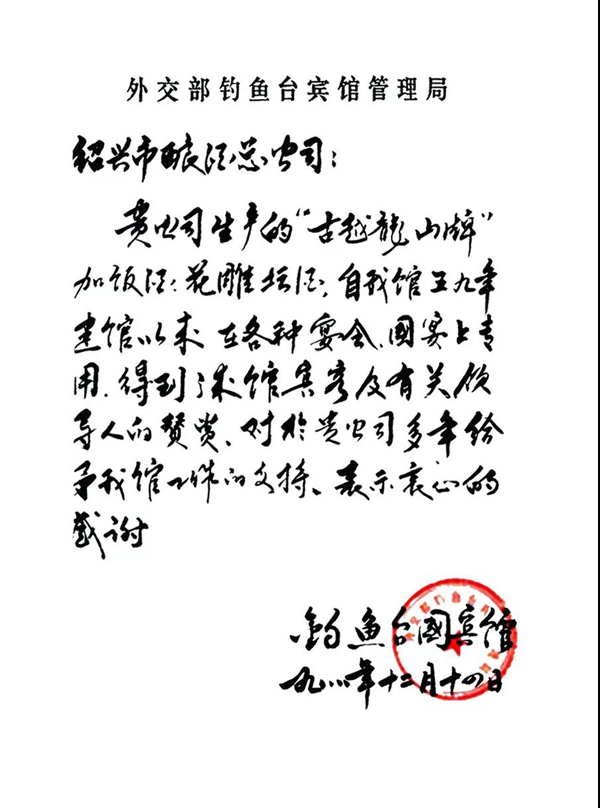 外交部钓鱼台宾馆管理局
绍兴市酿酒总公司：
贵公司生产的“古越龍山牌”
加饭酒、花雕坛酒，自我馆五九年
建馆以来 在各种宴会、國宴上专
用，得到来馆宾客及有关领
导人的赞赏、对於贵公司多年给
予我馆工作的支持、表示衷心的
感谢
钓鱼台國宾馆
十二月十四日